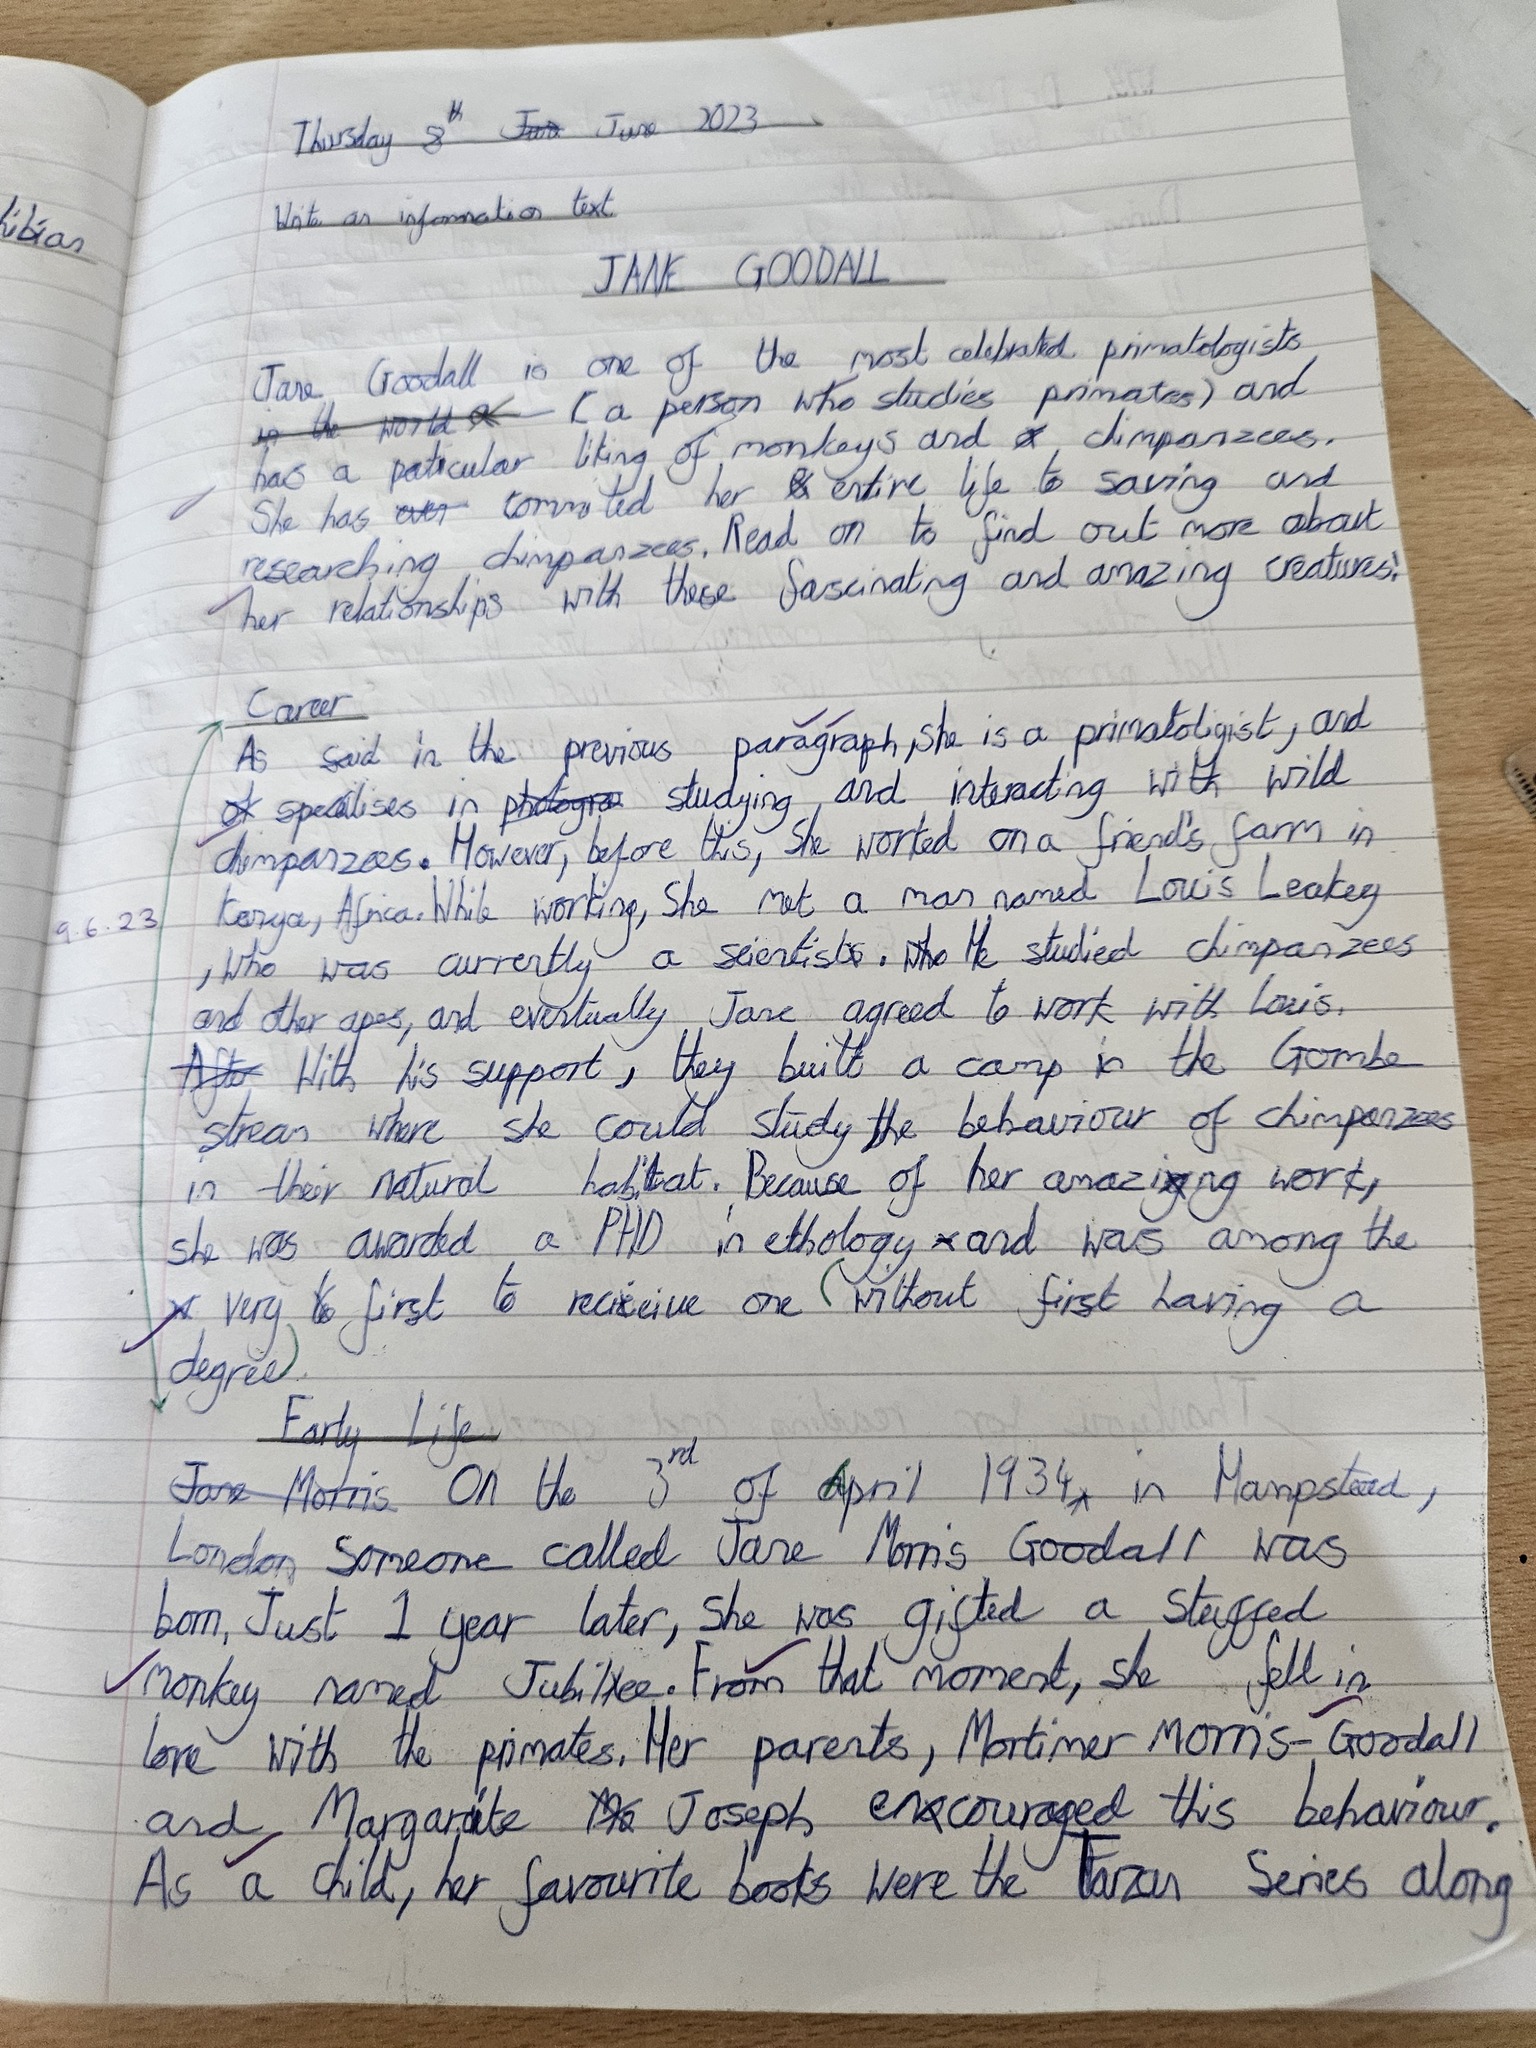 hibian
Thursday 8th Jun June 2023
Write an information text
JANE GOODALL
Jane Goodall is one of the most celebrated primatologists
in the world (a person who studies primates) and
has a paticular liking of monkeys and chimpanzees.
She has ever commited her entire life to saving and
researching chimpanzees. Read on to find out more about
her relationships with these fascinating and amazing creatures!
Career
As said in the previous paragraph, she is a primatoligist, and
specilises in photogra studying and interacting with wild
chimpanzees. However, before this, she worked on a friend's farm in
9.6.23 Kenya, Africa. While working, she met a man named Louis Leakey
, who was currently a scientist. who He studied chimpanzees
and other apes, and eventually Jane agreed to work with Louis.
After With his support, they built a camp in the Gombe
stream where she could study the behaviour of chimpanzees
in their natural habitat. Because of her amazing work,
she was awarded a PHD in ethology and was among the
very first to receive one (without first having a
degree).
Early Life
Jane Morris On the 3rd of April 1934, in Hampstead,
London someone called Jane Morris Goodall was
born. Just 1 year later, she was gifted a stuffed
monkey named Jubilee. From that moment, she fell in
love with the primates. Her parents, Mortimer Morris-Goodall
and Margarite Joseph encouraged this behaviour.
As a child, her favourite books were the Tarzan Series along